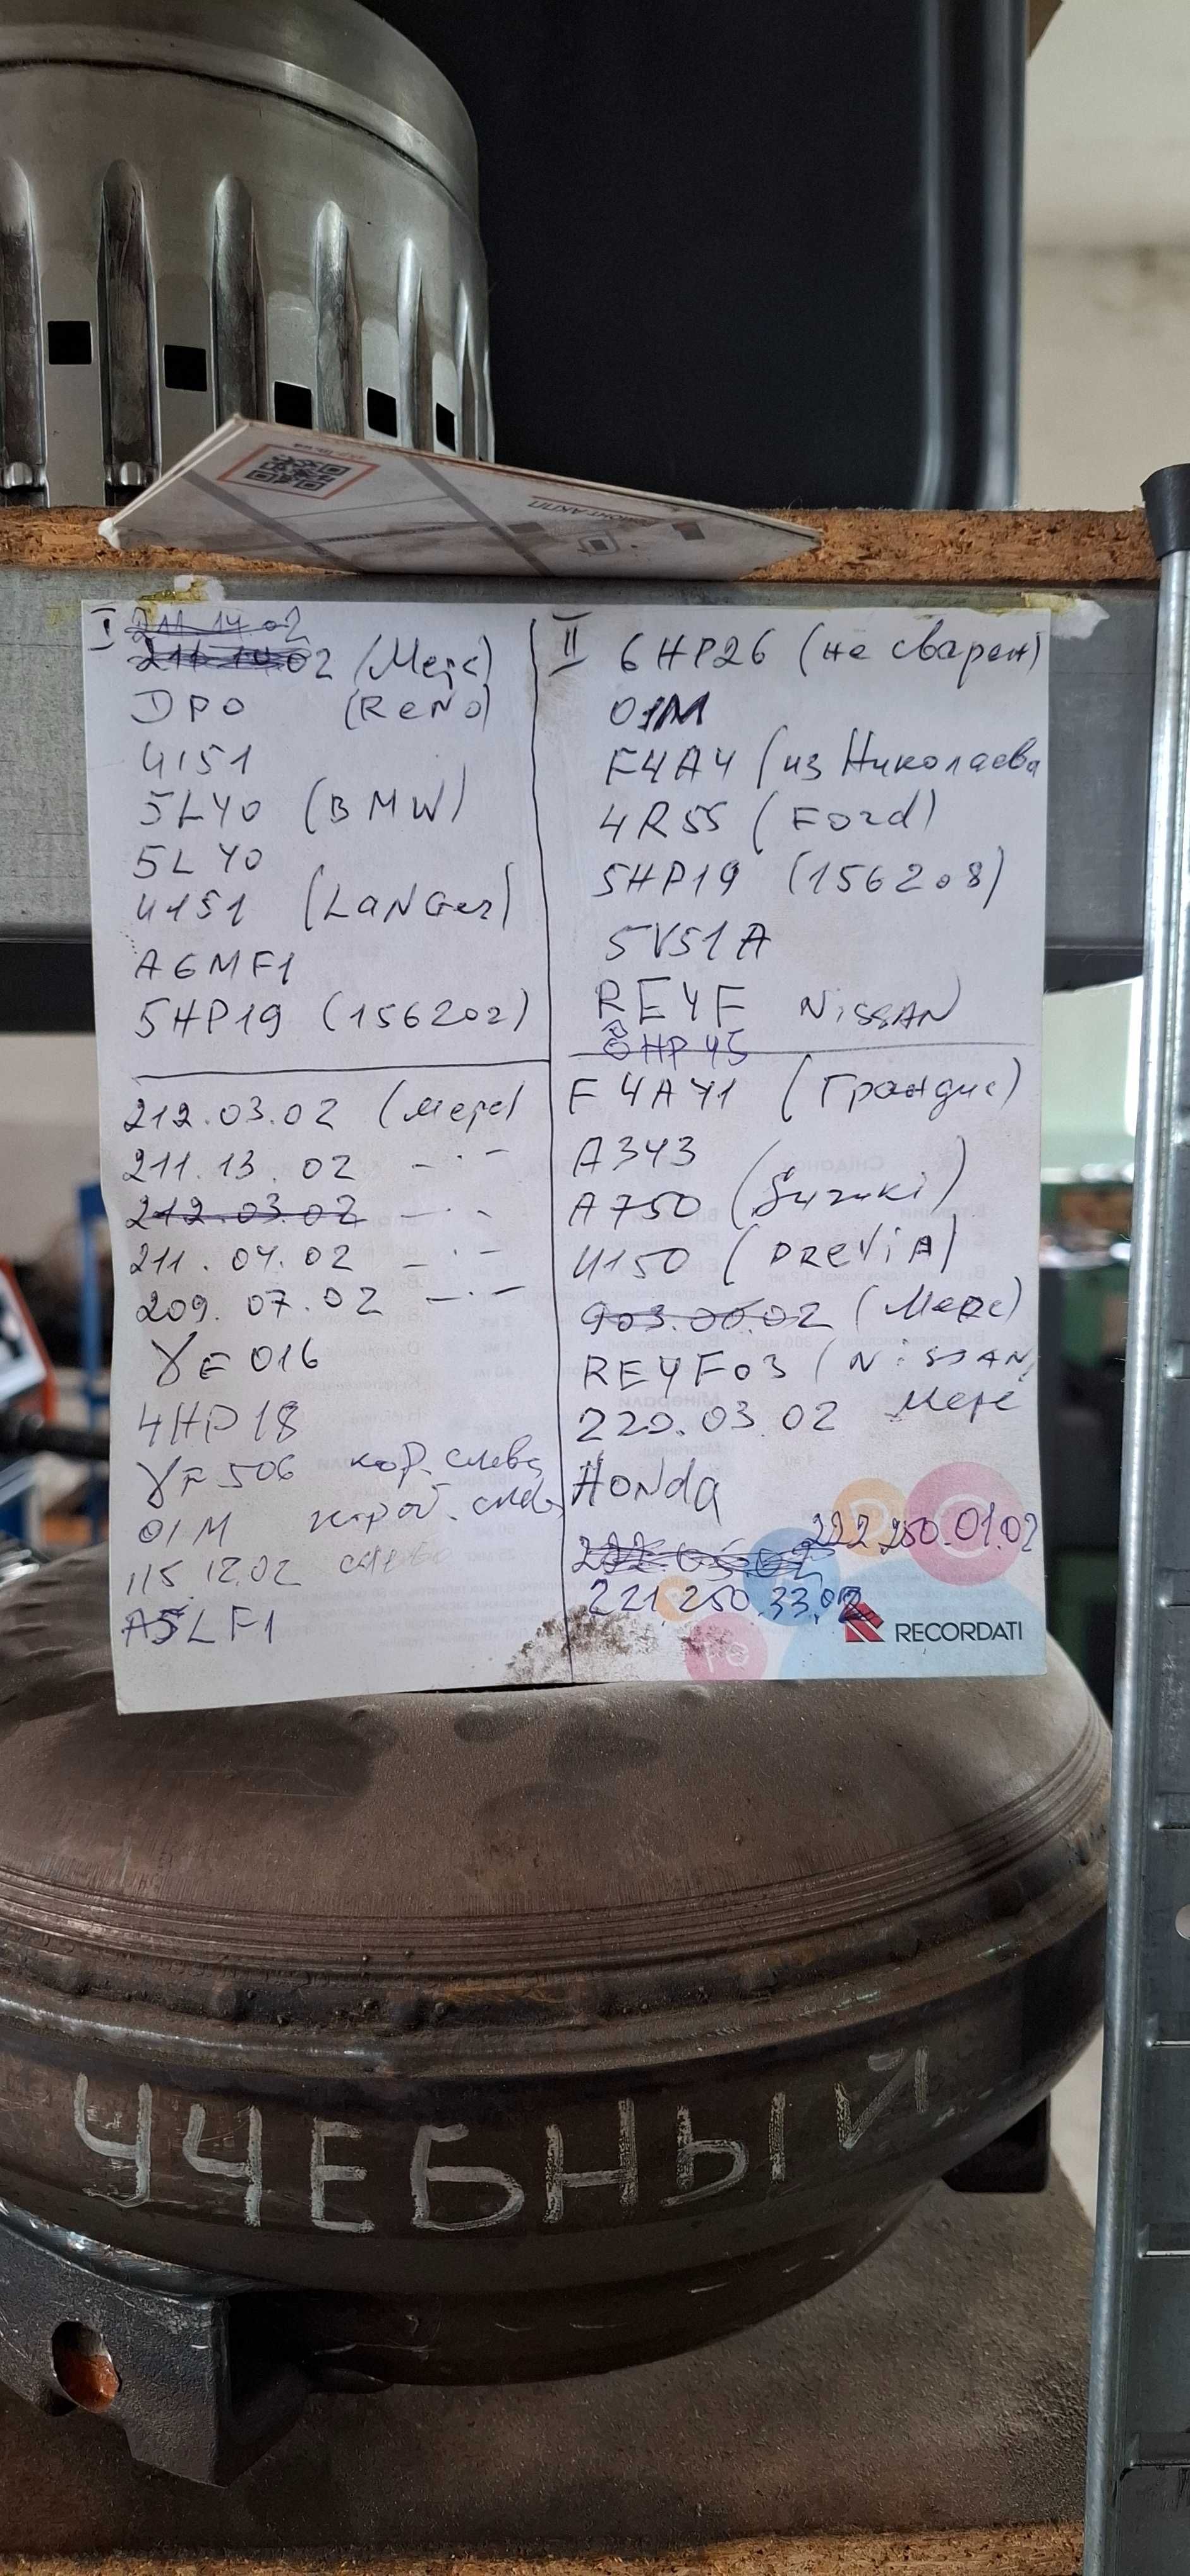 РЕМОНТ АКПП
I 211 14 02
211 14 02 (Мерс)
DPO (ReNo)
4151
5L40 (BMW)
5L40
4151 (LaNCer)
A6MF1
5HP19 (156202)
212.03.02 (мерс)
211.13.02 -·-
212.03.02 -·-
211.04.02 -·-
209.07.02 -·-
4HP18
01M
115.12.02
A5LF1
II 6HP26 (не сварен)
01M
F4A4 (из Николаева
4R55 (Ford)
5HP19 (156208)
5V51A
RE4F NiSSAN
6HP45
F4A41 (Грандис)
A343
A750 (Suzuki)
4150 (PREViA)
903.00.02 (Мерс)
RE4F03 (NiSSAN)
220.03.02 Мерс
HONda
222.250.01.02
221.250.33.02
RECORDATI
УЧЕБНЫЙ